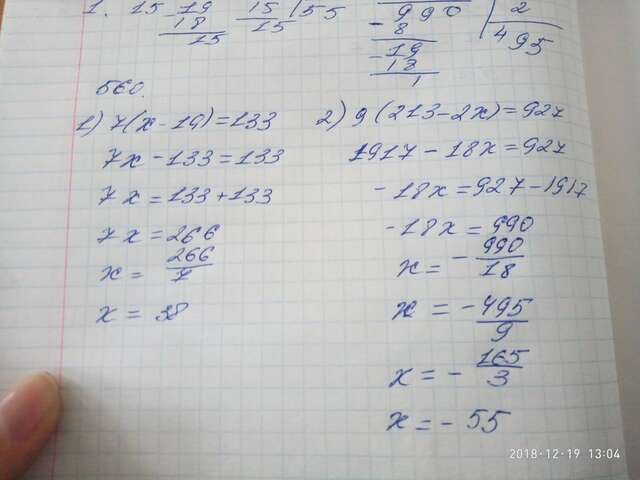 1. 15 19 15 | 55 990 | 2
18 15 - 8 495
15 - 19
18
1
560.
1) 7(x-19)=133
7x-133=133
7x=133+133
7x=266
x= 266/7
x = 38
2) 9(213-2x)=927
1917-18x=927
-18x=927-1917
-18x=990
x= - 990/18
x = - 495/9
x = - 165/3
x = - 55
2018-12-19 13:04